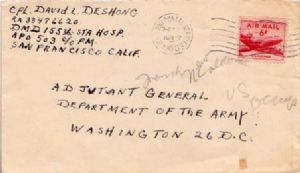 CPL. DAVID L. DESHONG
RA 33476620
DMD 155th STA HOSP.
APO 503 c/o PM.
SAN FRANCISCO CALIF.
AIR MAIL
6¢
ADJUTANT GENERAL
DEPARTMENT OF THE ARMY
WASHINGTON 26 D.C.
US